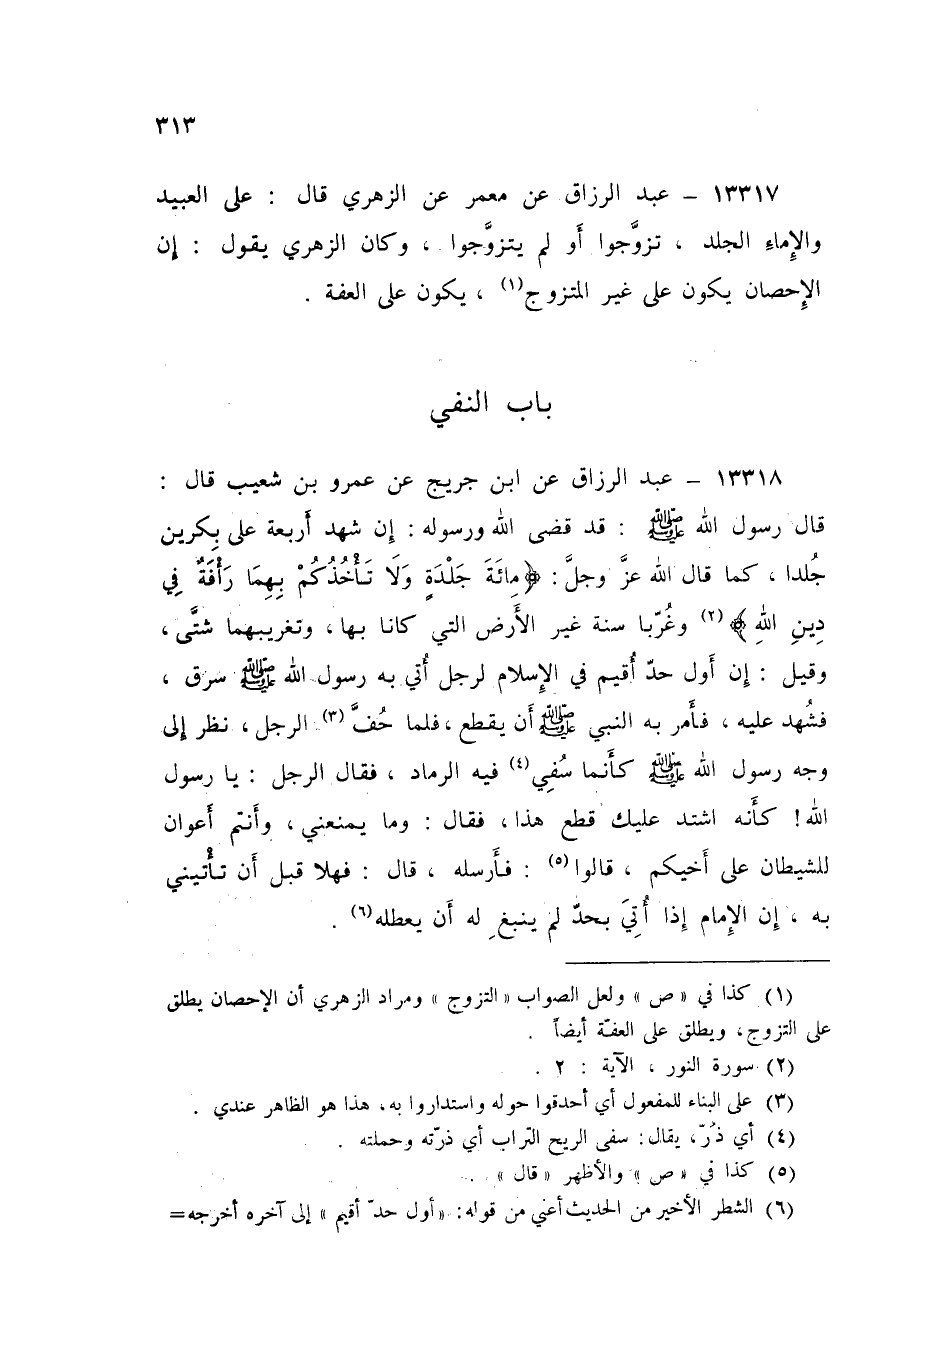 ٣١٣
١٣٣١٧ – عبد الرزاق عن معمر عن الزهري قال : على العبيد
والإِماءِ الجلد ، تزوَّجوا أَو لم يتزوَّجوا ، وكان الزهري يقول : إن
الإِحصان يكون على غير المتزوج(١) ، يكون على العفة .
باب النفي
١٣٣١٨ – عبد الرزاق عن ابن جريج عن عمرو بن شعيب قال :
قال رسول الله ﷺ : قد قضى الله ورسوله : إن شهد أَربعة على بِكرين
جُلدا ، كما قال الله عزَّ وجلَّ : ﴿مِائَةَ جَلْدَةٍ وَلَا تَأْخُذُكُمْ بِهِمَا رَأْفَةٌ فِي
دِينِ اللهِ﴾(٢) وغُرّبا سنة غير الأَرض التي كانا بها ، وتغريبهما شتَّى ،
وقيل : إِن أَول حدّ أُقيم في الإِسلام لرجل أُتي به رسول الله ﷺ سرق ،
فشُهد عليه ، فأَمر به النبي ﷺ أَن يقطع ، فلما حُفَّ(٣) الرجل ، نظر إِلى
وجه رسول الله ﷺ كأَنما سُفِي(٤) فيه الرماد ، فقال الرجل : يا رسول
الله! كأَنه اشتد عليك قطع هذا ، فقال : وما يمنعني ، وأَنتم أَعوان
للشيطان على أَخيكم ، قالوا(٥) : فأَرسله ، قال : فهلا قبل أَن تأْتيني
به ، إِن الإِمام إِذا أُتِيَ بحدّ لم ينبغِ له أَن يعطله(٦) .
(١) كذا في « ص » ولعل الصواب « التزوج » ومراد الزهري أن الإحصان يطلق
على التزوج، ويطلق على العفّة أيضاً .
(٢) سورة النور ، الآية : ٢ .
(٣) على البناء للمفعول أي أحدقوا حوله واستداروا به، هذا هو الظاهر عندي .
(٤) أي ذُرّ، يقال: سفى الريح التراب أي ذرّته وحملته .
(٥) كذا في « ص » والأظهر « قال » .
(٦) الشطر الأخير من الحديث أعني من قوله: «أول حدّ أقيم » إلى آخره أخرجه=